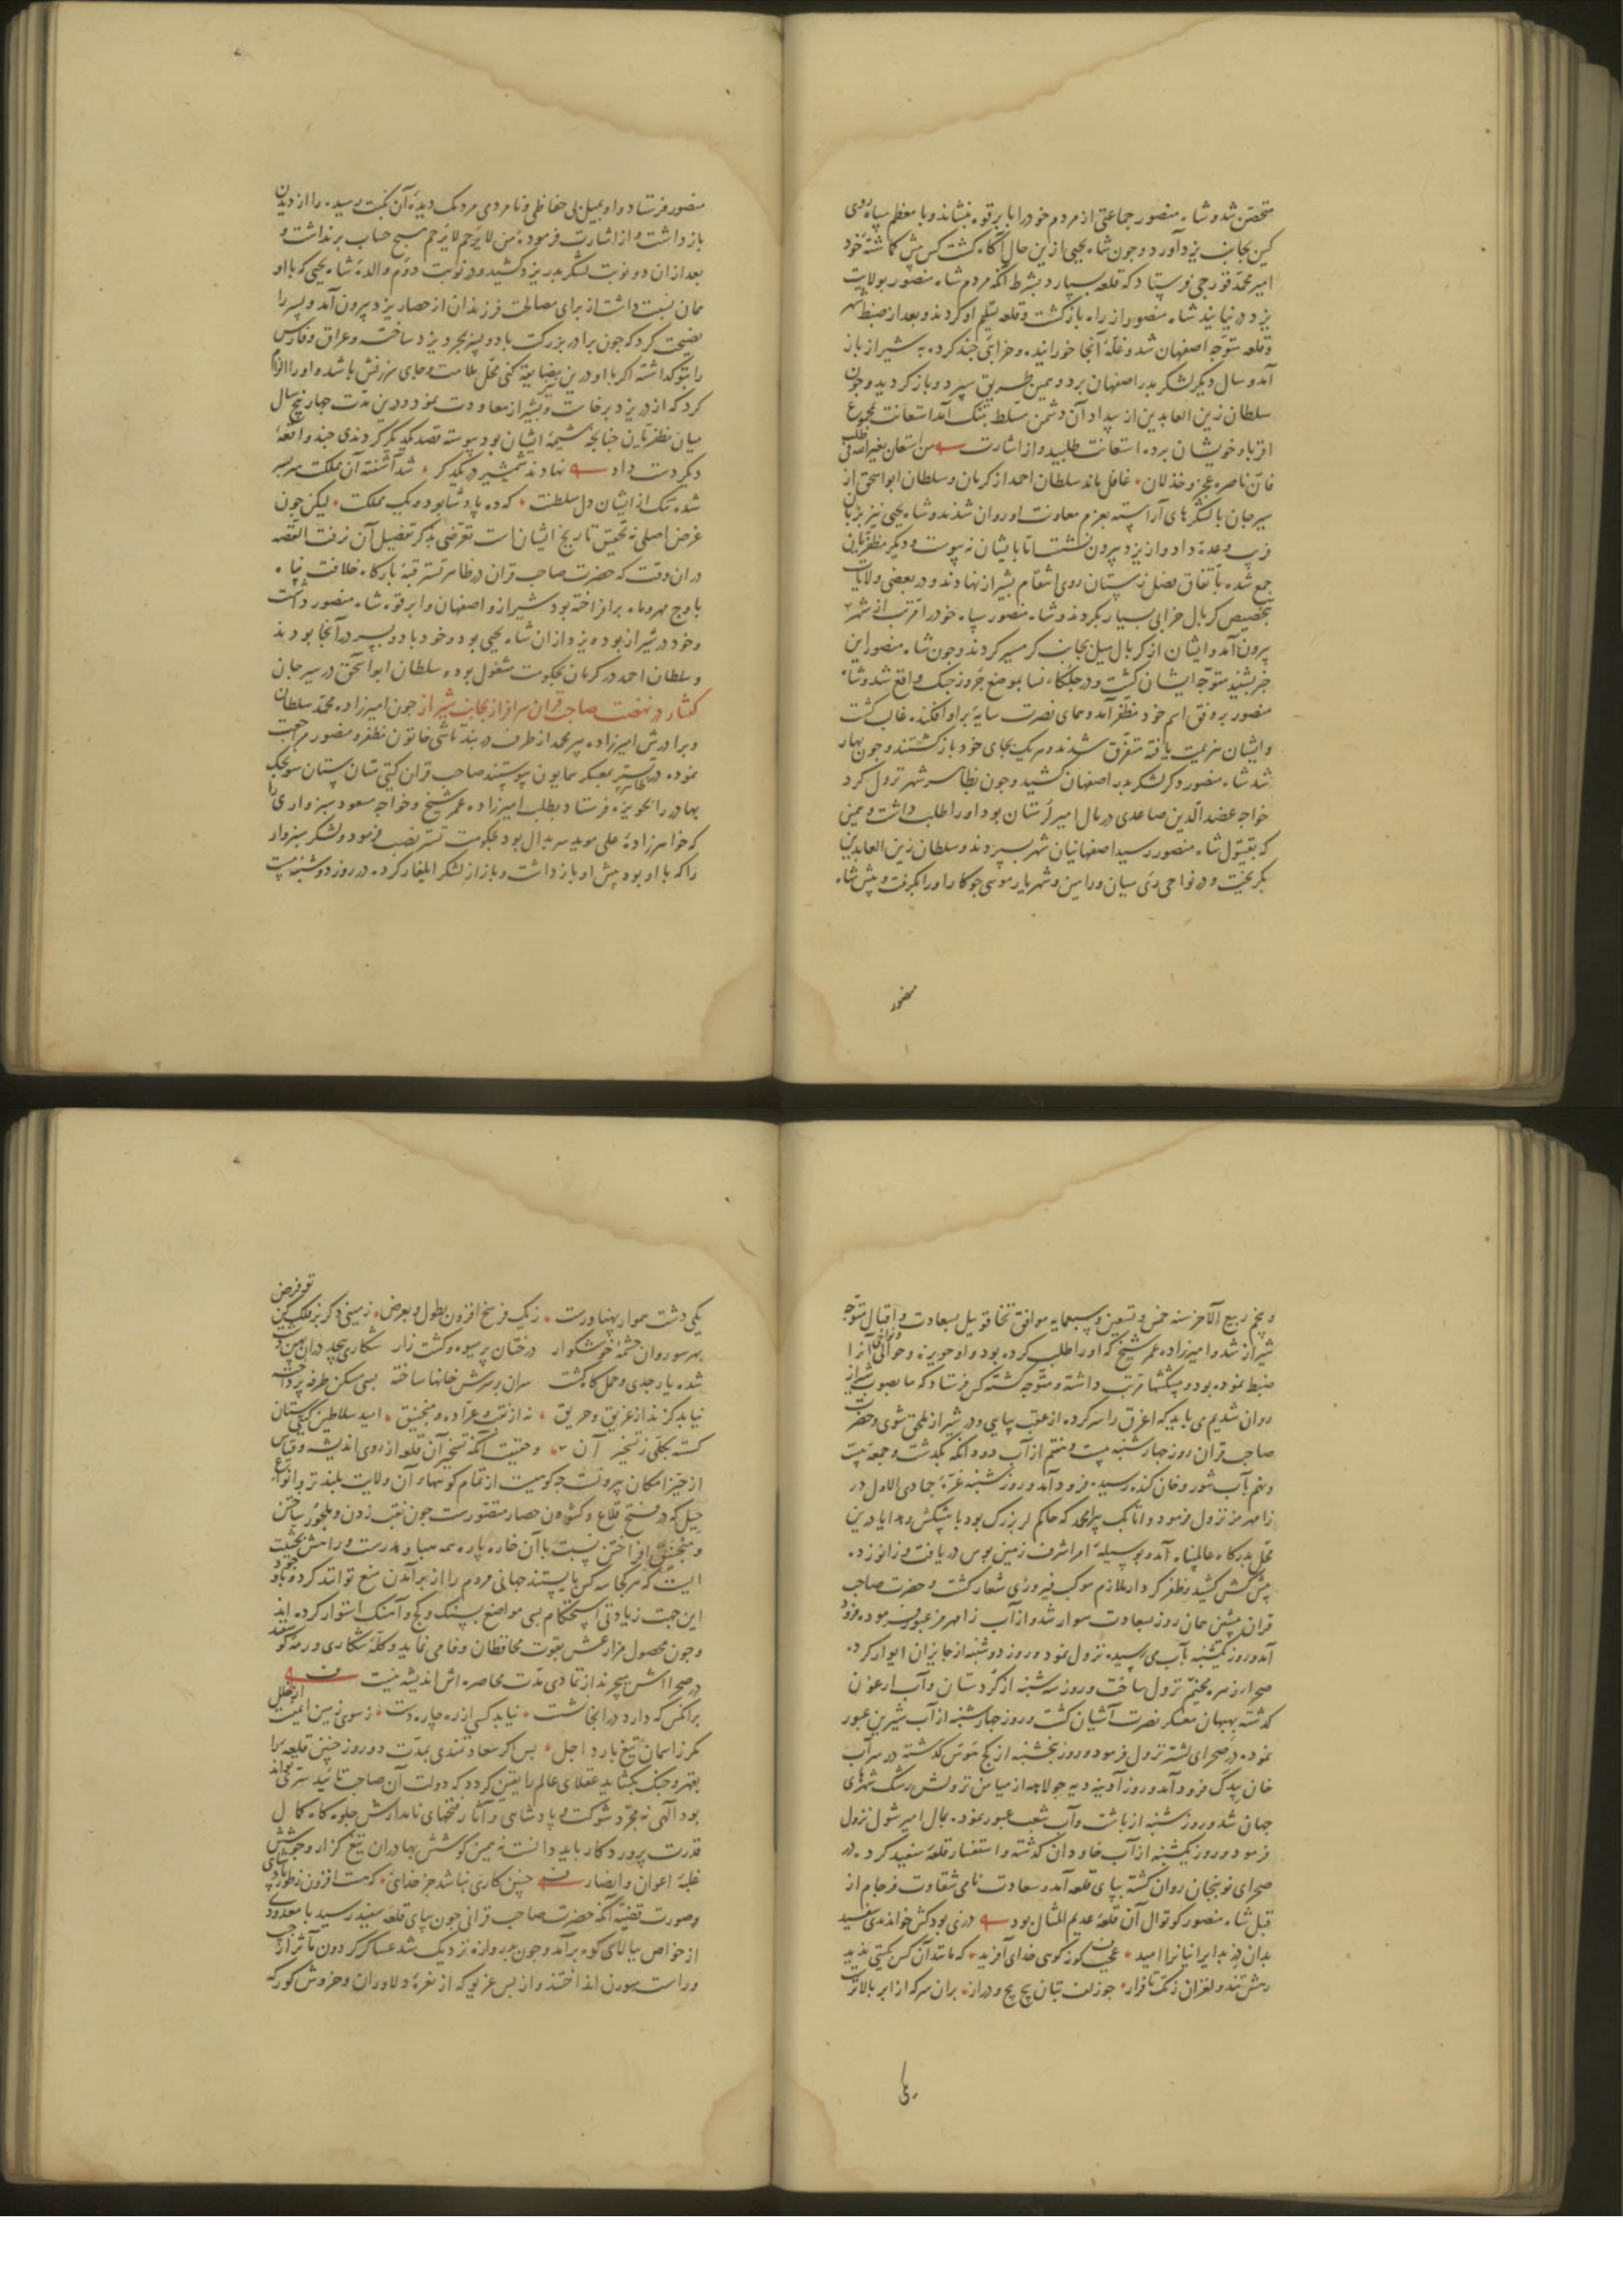 متحصّن شد و شاه منصور جماعتی از مردم خود را با برقوه بنشاند و با معظم سپاه روی
کین بجانب یزد آورد و چون شاه یحیی ازین حال آگاه گشت کس پیش کماشتهٔ خود
امیر محمد قورجی فرستاد که قلعه بسپارد بشرط آنکه مردم شاه منصور بولایت
یزد در نیایند شاه منصور از راه بازگشت و قلعه تسلیم او کردند و بعد از ضبط شهر
و قلعه متوجّه اصفهان شد و غلّهٔ آنجا خورانیده و خرابی چند کرده به شیراز باز
آمد و سال دیگر لشکر بدر اصفهان برد و بهمین طریق سپرد و باز گردید و چون
سلطان زین العابدین از بیداد آن دشمن مسلّط بتنک آمد استعانت بمجموع
اقربا و خویشان برده استعانت طلبید و از اشارت من استعان بغیر الله فی طلب
فانّ ناصره عجز و خذلان غافل ماند سلطان احمد از کرمان و سلطان ابو اسحق از
سیرجان با لشکرهای آراسته بعزم معاونت او روان شدند و شاه یحیی نیز بزبان
وعدهٔ داد و از یزد بیرون نشست اما بایشان نه پیوست و دیگر مظفریان
جمع شده باتّفاق فصل زمستان روی انتقام بشیراز نهادند و در بعضی ولایات
بتخصیص کربال خرابی بسیار بکردند و شاه منصور سپاه خود را مرتب از شهر
بیرون آمد و ایشان از کربال میل بجانب کرمسیر کردند و چون شاه منصور این
خبر بشنید متوجّه ایشان گشت و در جلگاه فسا بموضع فروز جنک واقع شد و شاه
منصور بر وفق اسم خود مظفر آمد و همای نصرت سایه بر او افکنده غالب گشت
و ایشان هزیمت یافته متفرّق شدند و هر یک بجای خود بازگشتند و چون بهار
شد شاه منصور دکر لشکر بدر اصفهان کشید و چون بظاهر شهر نزول کرد
خواجه عضد الدین صاعدی در مال امیر لرستان بود او را طلب داشت و بیمنی
که بقبول شاه منصور رسید اصفهانیان شهر بسپردند و سلطان زین العابدین
بکریخت و در نواحی ری میان ورامین و شهریار موسی جوکار او را بکرفت و پیش شاه
منصور
منصور فرستاد و او بمیل بی حفاظی و نامردی مردمک دیدهٔ آن نکبت رسیده را از دیدن
باز داشت و از اشارت فرمودهٔ من لا یرحم لا یرحم هیچ حساب برنداشت و
بعد از ان دو نوبت لشکر بدر یزد کشید و در نوبت دوم والدهٔ شاه یحیی که با او
همان نسبت داشت از برای مصالحت فرزندان از حصار یزد بیرون آمد و پسر را
نصیحت کرد که چون برادر بزرکت با دو پسر بجرد یزد ساخت و عراق و فارس
را بتو کداشته اکر با او درین مضایقه کنی محلّ ملامت و جای سرزنش باشد و او را الزام
کرد که از در یزد برخاست و بشیراز معاودت نمود و درین مدت چهار پنج سال
میان مظفریان چنانچه شیمهٔ ایشان بود پیوسته قصد یکدیگر کردندی چند واقعهٔ
دیکر دست داد نهادند شمشیر در یکدکر شد آشفته آن مملکت سربسر
شده تنک از ایشان دل سلطنت که ده پادشا بود و یک مملکت لیکن چون
غرض اصلی نه تحقیق تاریخ ایشان است تعرّضی بذکر تفصیل آن نرفت القصه
در ان وقت که حضرت صاحب قران در ظاهر تستر قبّهٔ بارکاه خلافت پناه
باوج مهر و ماه برافراخته بود شیراز و اصفهان و ابرقوه شاه منصور داشت
و خود در شیراز بود و یزد از ان شاه یحیی بود و خود با دو پسر در آنجا بودند
و سلطان احمد در کرمان بحکومت مشغول بود و سلطان ابو اسحق در سیرجان
گفتار در نهضت صاحب قران سرافراز بجانب شیراز چون امیرزاده محمد سلطان
و برادرش امیرزاده پیر محمد از طرف دربند تاشی خاتون مظفر و منصور مراجعت
نموده در ظاهر تستر بمعسکر همایون پیوستند صاحب قران کیتی ستان سونجک
بهادر را بحویزه فرستاد بطلب امیرزاده عمر شیخ و خواجه مسعود سبزواری را
که خواهرزادهٔ علی موید سربدال بود بحکومت تستر نصب فرمود و لشکر سبزوار
را که با او بود پیش او باز داشت و باز از لشکر ایلغار کرده در روز دوشنبه بیست
و پنجم ربیع الآخر سنه خمس و تسعین و سبعمایه موافق تخاقوی ییل بسعادت و اقبال متوجّه
شیراز شد و امیرزاده عمر شیخ که او را طلب کرده بود و او حویزه و حوالی و نواحی آنرا
ضبط نموده بود و پیشکشها مرتب داشته و متوجّه گشته کس فرستاد که ما بصوب شیراز
روان شدیم می باید که اغرق را سر کرده از عقب بیایی و در شیراز ملحق شوی و حضرت
صاحب قران روز چهارشنبه بیست و هفتم از آب دودانکه بگذشت و جمعه بیست
و نهم بآب شور و خان کنده رسیده فرود آمد و روز شنبه غرّهٔ جمادی الاول در
رامهرمز نزول فرمود و اتابک پیر احمد که حاکم لر بزرک بود با پیشکش و هدایا درین
محل بدرکاه عالمپناه آمد و بوسیلهٔ امرا شرف زمین بوس دریافت و زانو زده
پیش کش کشید و ظفر کردار ملازم موکب فیروزی شعار گشت و حضرت صاحب
قران پیشین همان روز بسعادت سوار شد و از آب رامهرمز عبور فرموده فرود
آمد و روز یکشنبه بآب می رسیده نزول نمود و روز دوشنبه از جایزان ایوار کرده
صحرا زهره مخیّم نزول ساخت و روز سه شنبه از کردستان و آب ارغون
کذشته بهبهان معسکر نصرت آشیان گشت و روز چهارشنبه از آب شیرین عبور
نموده در صحرای لشتر نزول فرمود و روز پنجشنبه از کج حوش کذشته در سر آب
خان بیدک فرود آمد و روز آدینه دیه جولاهه از میامن نزولش رشک شهرهای
جهان شد و روز شنبه از باشت و آب شعب عبور نموده بمال امیر شول نزول
فرمود و روز یکشنبه از آب خاودان کذشته و استفسار قلعهٔ سفید کرده در
صحرای نوبنجان روان گشته بپای قلعه آمد و سعادت نامی شقاوت فرجام از
قبل شاه منصور کوتوال آن قلعهٔ عدیم المثال بود دزی بود کش خواندندی سفید
بدان دز بد ایرانیانرا امید عجایب کوز کوهی خدای آفرید که مانند آن کس بکیتی ندید
رهش تند و لغزان ز تک تا فراز چو زلف بتان پیچ پیچ و دراز بران سر که از ابر بالاترست
یکی
یکی دشت هموار پهناورست ز یک فرسخ افزون بطول و بعرض زمینی دکر بر فلک کن تو فرض
بهر سو روان چشمهٔ خوشکوار درختان پر میوه و کشت زار شکاری بیحد دران بهن دشت
شده یار جدی و حمل کاه کشت سران بر سرش خانها ساخته بسی مسکن طرفه پرداخته
نیابد کزند از غریق و حریق نه از نفت و عرّاده و منجنیق امید سلاطین کیتی ستان
کسسته بکلّی ز تسخیر آن و حقیقت آنکه تسخیر آن قلعه از روی اندیشه و قیاس
از حیّز امکان بیرونست چه کوهیست از تمام کوههاء آن ولایت بلندتر و انواع
حیل که در فتح قلاع و کشودن حصار متصوّرست چون نقب زدن و ملجور ساختن
و منجنیق افراختن نسبت با آن خاره پاره همه هبا و هدرست و راهش بحیثیت
ایست که هر کجا سه کس بایستند جهانی مردم را از برآمدن منع توانند کرد و با وجود
این جهت زیادتی استحکام بسی مواضع بسنک و کچ و آهنک استوار کرده اند
و چون محصول مزارعش بقوت محافظان وفا می نماید و کلّهٔ شکاری و رمهٔ کوسفند
در صحراش میچرند از تمادی مدّت محاصره اش اندیشه نیست
بر آنکس که دارد در آنجا نشست نیابد کسی از ره چاره دست ز سوی زمین ایمنست از خلل
مکر ز آسمان تیغ بارد اجل پس اکر سعادتمندی بمدّت دو روز چنین قلعه را
بقهر و جنک بکشاید عقلای عالم را یقین کردد که دولت آن صاحب تایید سرّی تواند
بود الهی نه مجرّد شوکت پادشاهی و آثار فتحهای نامدارش جلوه کاه کمال
قدرت پروردکار باید دانست نه بمین کوشش بهادران تیغ گزار و جوشش
غلبهٔ اعوان و انصار چنین کاری نباشد جز خدائی که هست افزون ز طور پادشائی
و صورت قضیّه آنکه حضرت صاحب قرانی چون بپای قلعه سفید رسید با معدودی
از خواص ببالای کوه برآمد و چون بدروازه نزدیک شد عساکر کردون مآثر از چپ
و راست سورن انداختند و از بس غریو که از نعرهٔ دلاوران و خروش کورکه